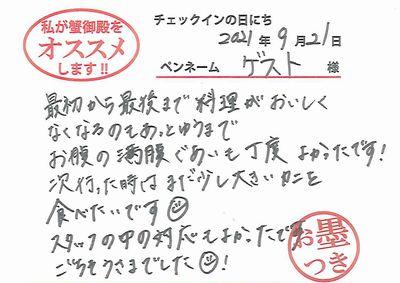 私が蟹御殿を
オススメ
します!!
チェックインの日にち
2021年9月21日
ペンネーム ゲスト 様
最初から最後まで料理がおいしく
なくなるのもあっとゆうまで
お腹の満腹ぐあいも丁度よかったです!
次行った時はまだ少し大きいカニを
食べたいです
スタッフの中の対応もよかったです
ごちそうさまでした!
お墨
つき